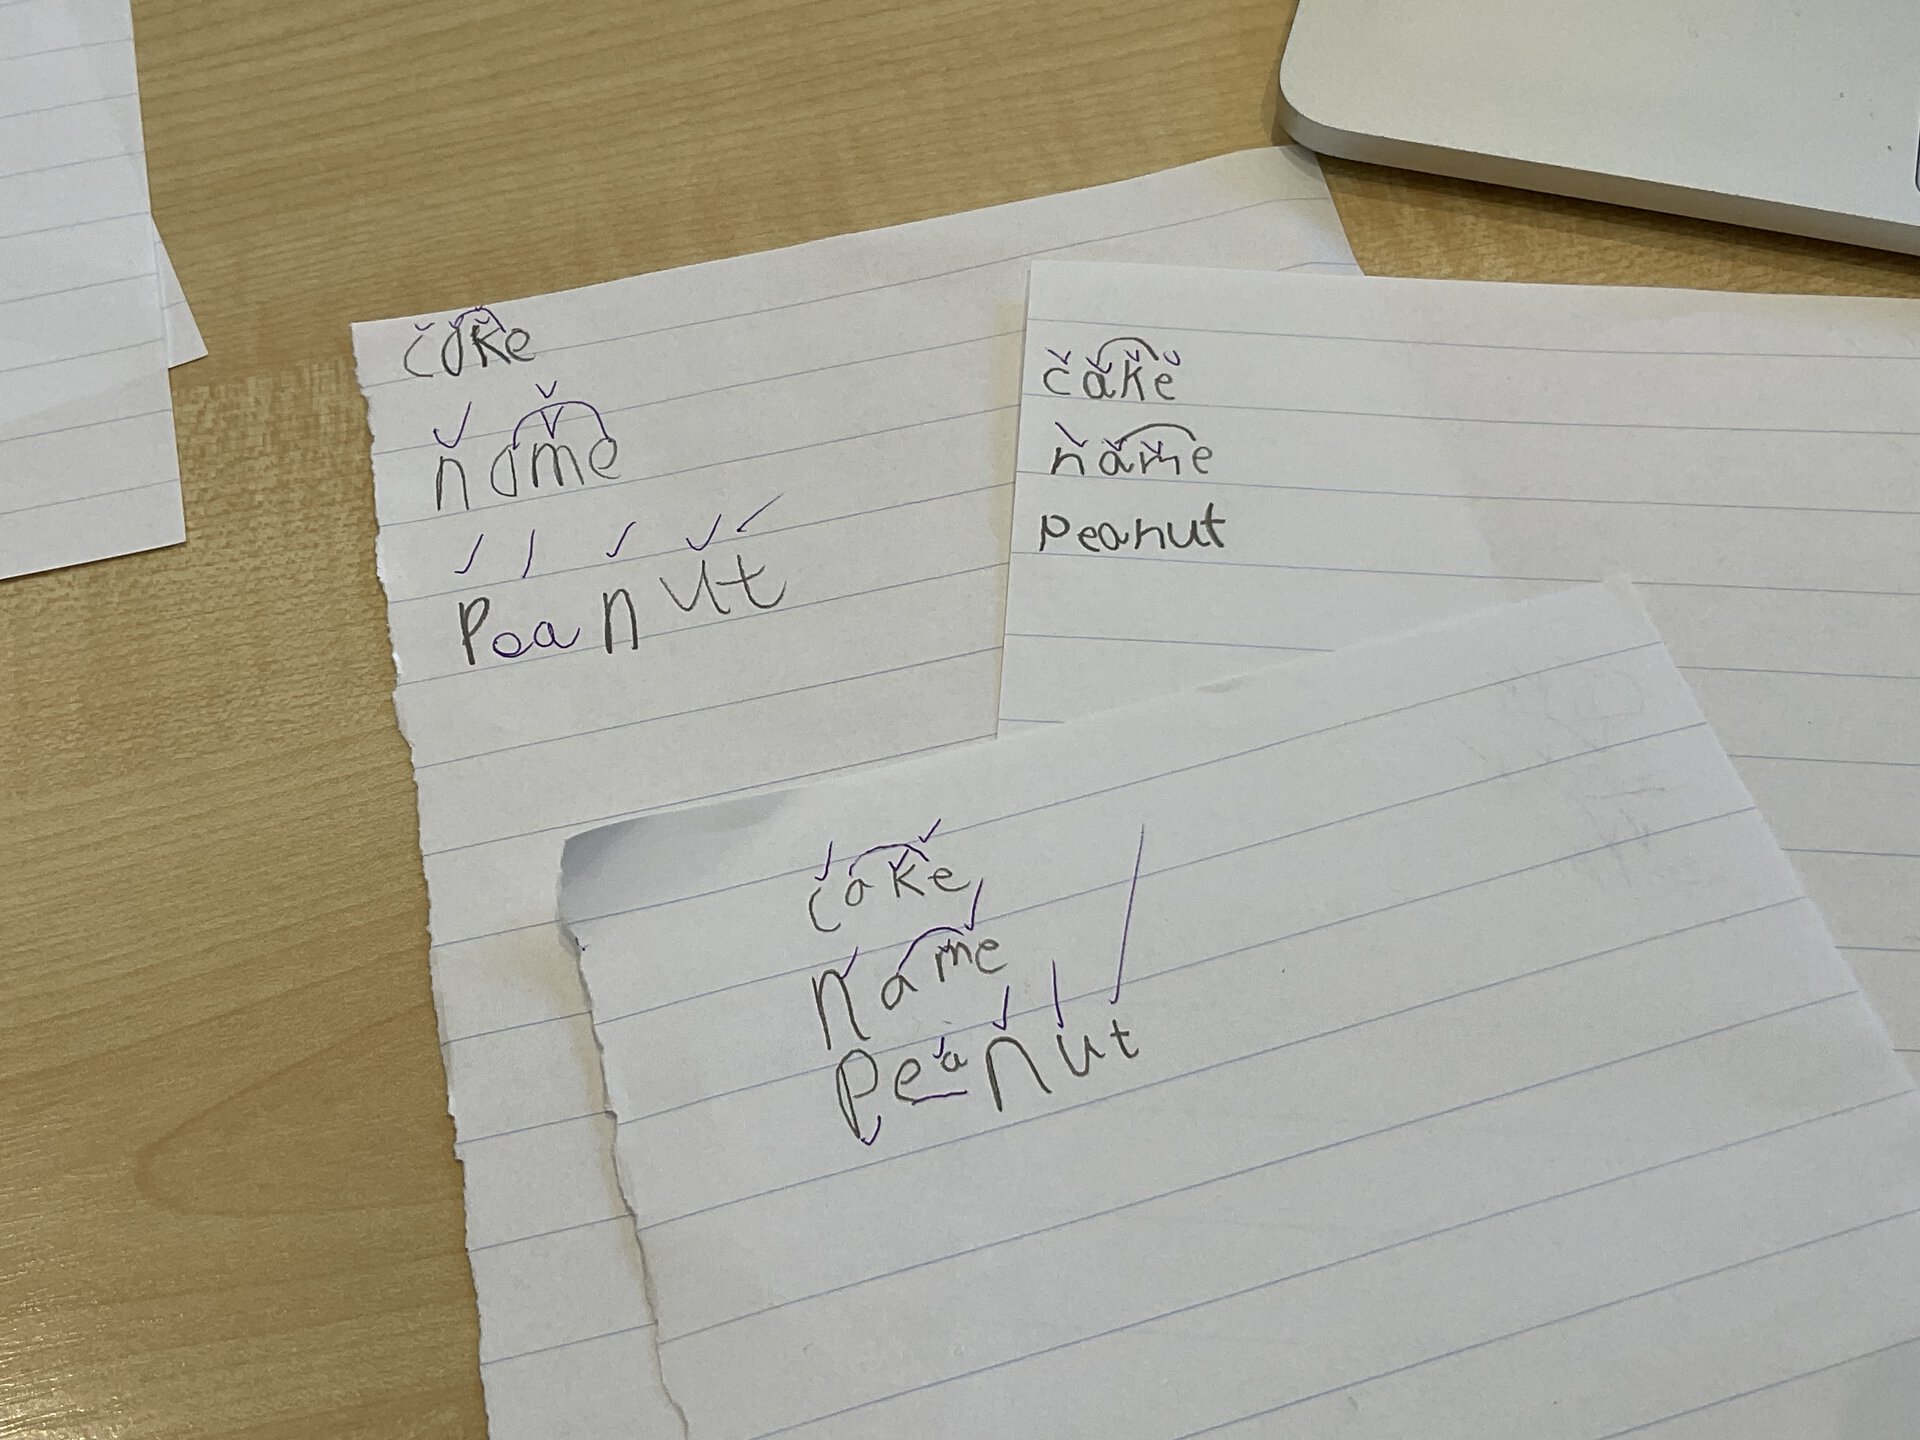 cake
name
Peanut
cake
name
Peanut
cake
name
Peanut